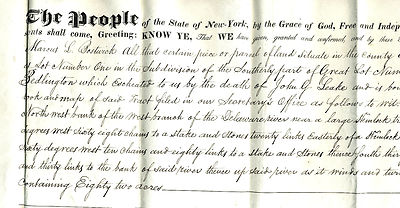 The People of the State of New-York, by the Grace of God, Free and Indep
ents shall come, Greeting: KNOW YE, That WE have given, granted and confirmed, and by these
Marcus L. Bostwick All that certain piece or parcel of land Situate in the County
Lot Number One in the Subdivision of the Southerly part of Great Lot Num
Bedlington which escheated to us by the death of John G Leake and is bou
book and map of said Tract filed in our Secretary's Office as follows to wit
North west bank of the West branch of the Delaware river near a large Hemlock tr
degrees west sixty eight chains to a stake and Stones twenty links Easterly of a Hemlock
Sixty degrees west ten chains and eighty links to a stake and Stones thence South thir
and thirty links to the bank of said river thence up said river as it winds and turn
Containing Eighty two acres